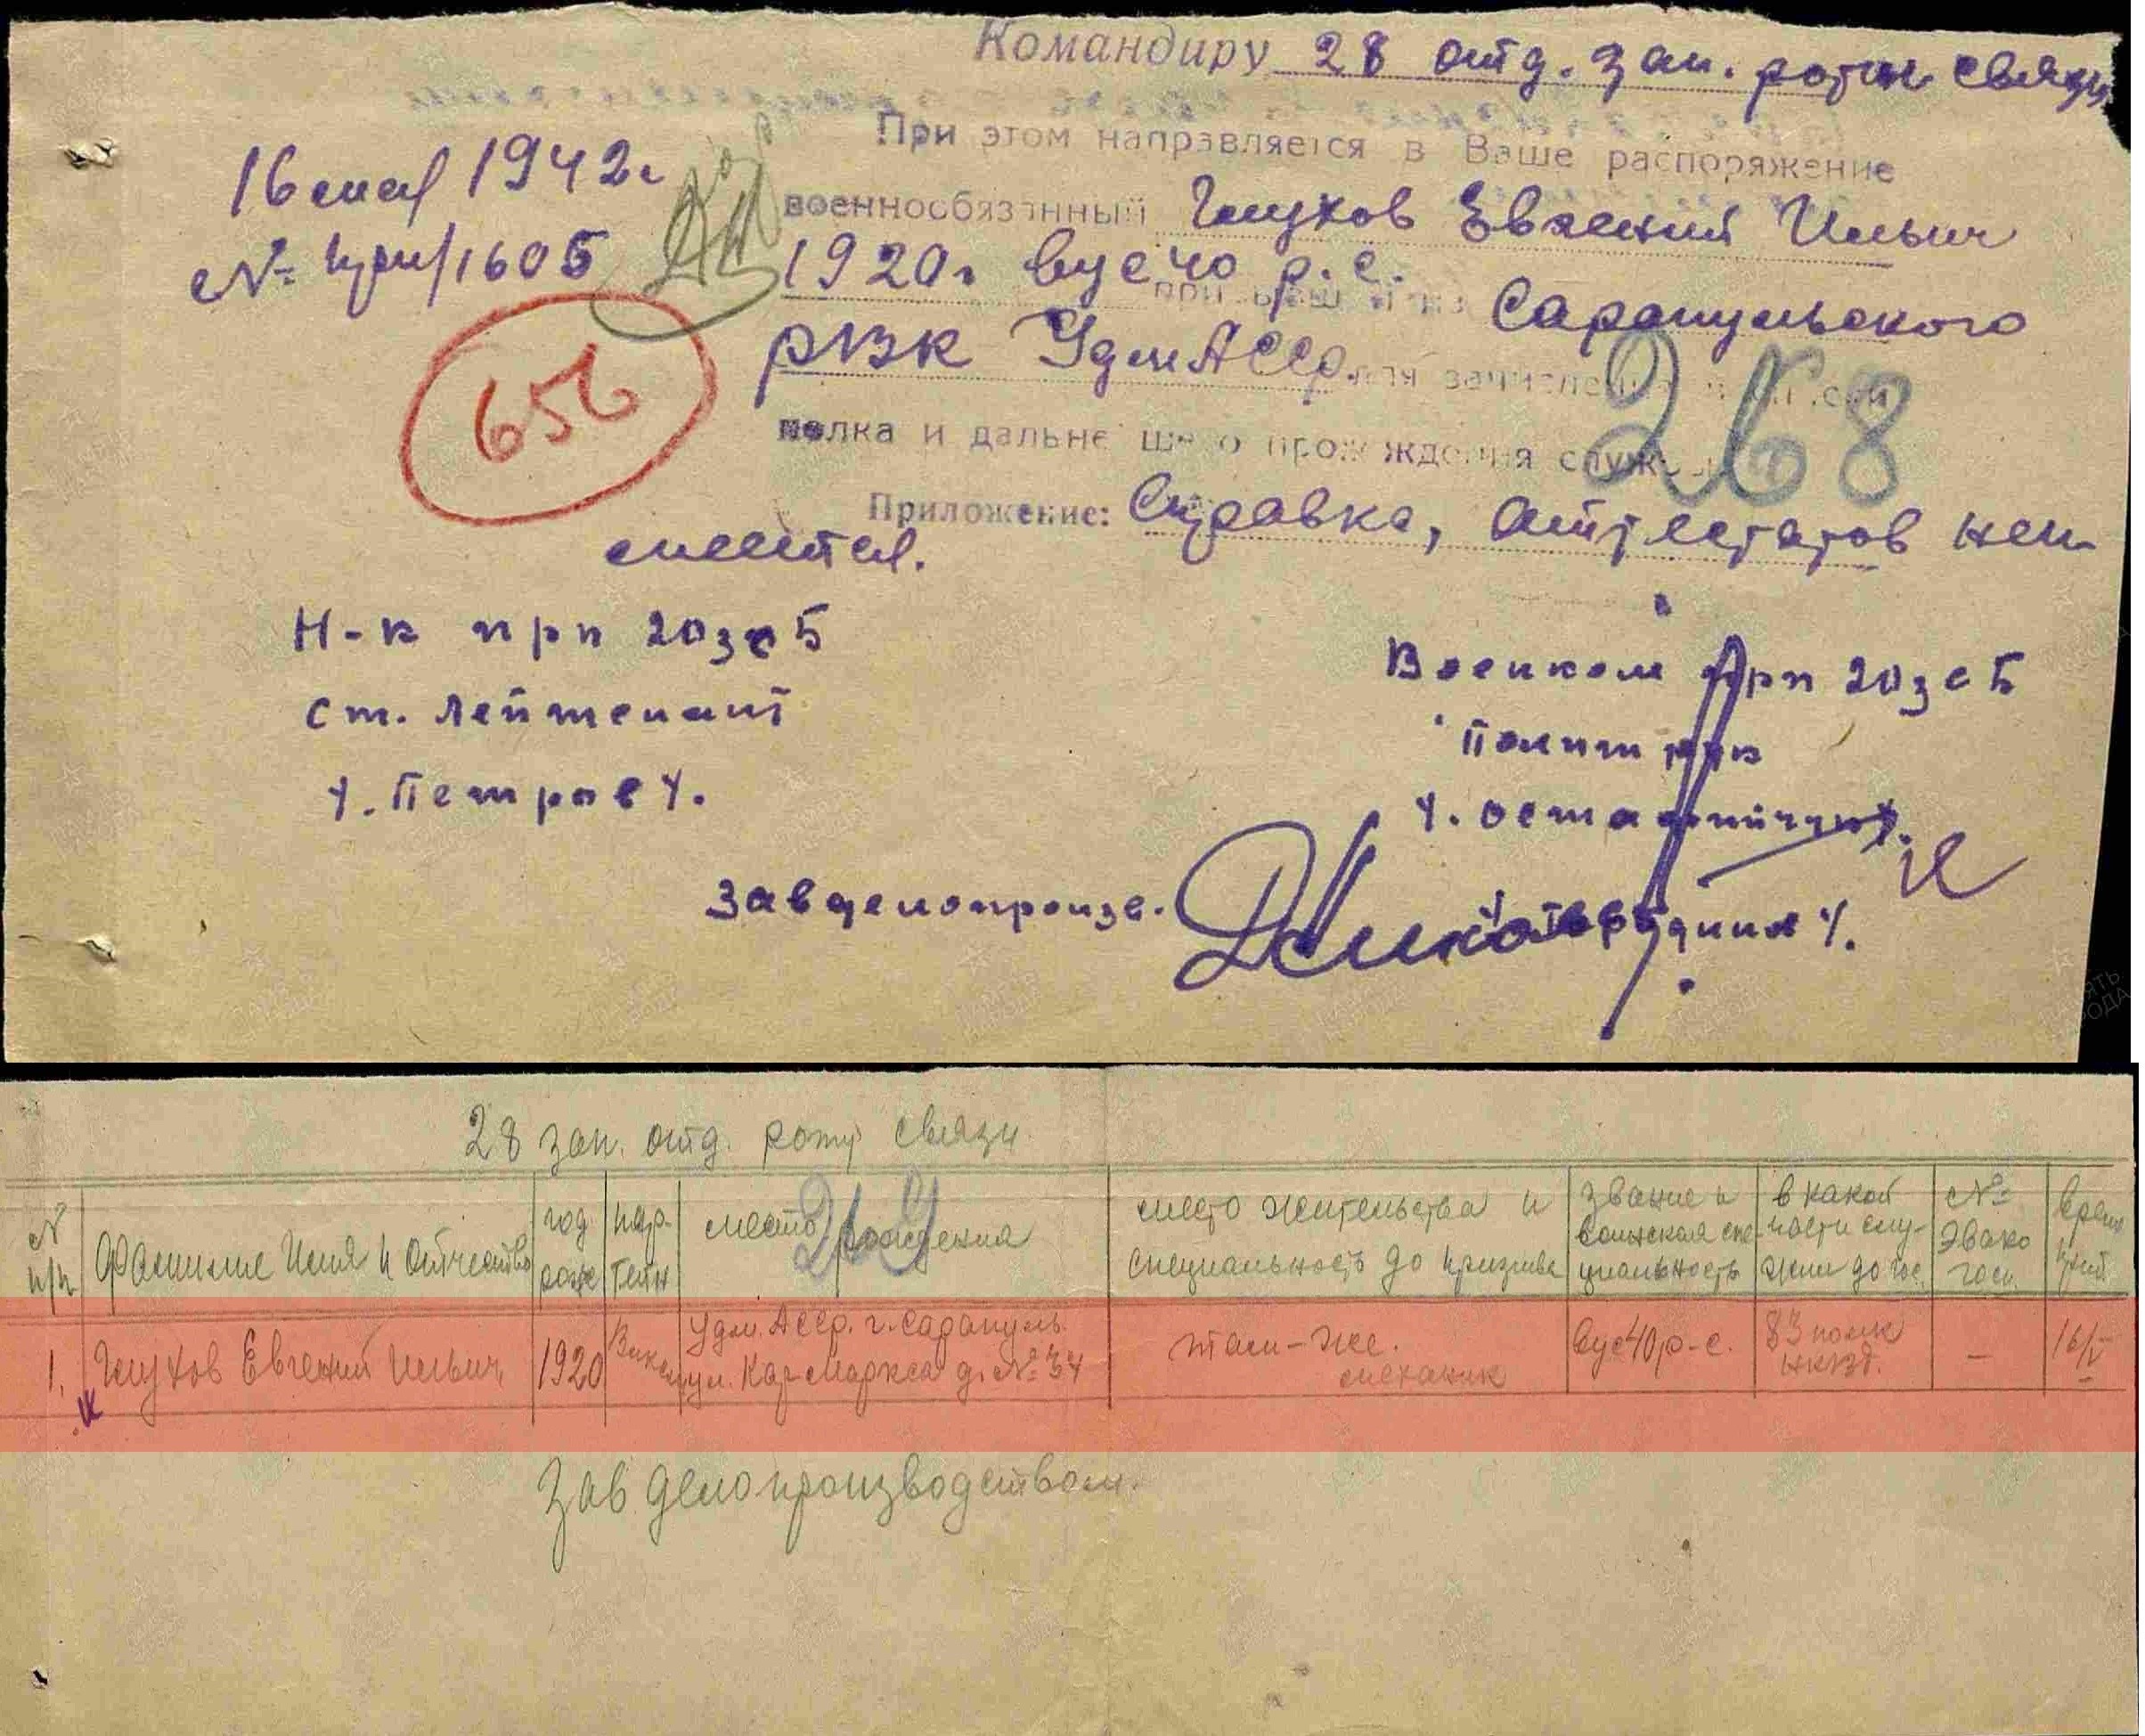 Командиру 28 отд. зап. роты связи
При этом направляется в Ваше распоряжение
16 мая 1942г
военнообязанный Глухов Евгений Ильич
№ при/1605
1920г вус 40 р.с.
Сарапульского
РВК УдмАССР. для зачисления
656
268
полка и дальнейшего прохождения службы
Приложение: Справка, аттестатов не
имеется.
Н-к прп 20зсб
Военком прп 20зсб
ст. лейтенант
Политрук
/. Петров /.
Завделопроизв.
28 зап. отд. роту связи
№ п/п
Фамилие Имя и Отчество
год рожд
пар-тейн
место рождения
место жительства и специальность до призыва
Звание и воинская специальность
в какой части служил до гос.
№ эвако госп
время приб.
1. Глухов Евгений Ильич
1920
Удм. АССР. г. Сарапуль ул. Кар Маркса д. № 34
там-же. механик
вус 40 р-с.
83 полк НКВД.
–
16/V
Зав делопроизводством.